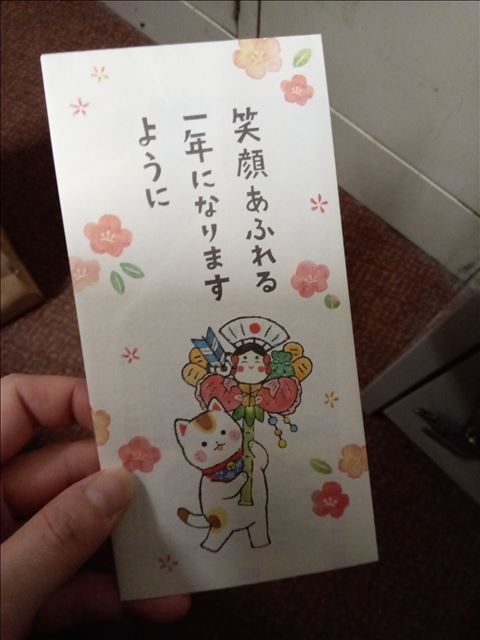 笑顔あふれる
一年になります
ように